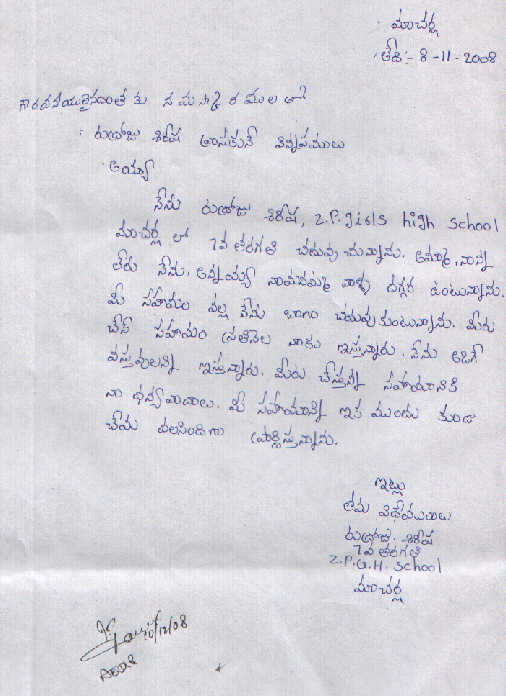 మాచర్ల
తేది:- 8-11-2008
గౌరవనీయులైనదాతకు నమస్కారములతో
రుద్రోజు శిరీష వ్రాసుకునే విన్నపములు
అయ్యా
నేను రుద్రోజు శిరీష, Z.P. girls high school
మాచర్ల లో 7వ తరగతి చదువు చున్నాను. అమ్మా, నాన్న
లేరు నేను, అన్నయ్య నాయనమ్మ వాళ్ళ దగ్గర ఉంటున్నాను.
మీ సహాయం వల్ల నేను బాగా చదువు కుంటున్నాను. మీరు
చేసే సహాయం ప్రతినెల నాకు ఇస్తున్నారు. నేను అడిగే
వస్తువులన్ని ఇస్తున్నారు. మీరు చేస్తున్న సహాయానికి
నా ధన్యవాదాలు. మీ సహాయాన్ని ఇక ముందు కుడా
చేయ వలసిందిగా ప్రార్థిస్తున్నాను.
ఇట్లు
తమ విధేయురాలు
రుద్రోజు. శిరీష
7వ తరగతి
Z.P.G.H. School
మాచర్ల
10/12/08